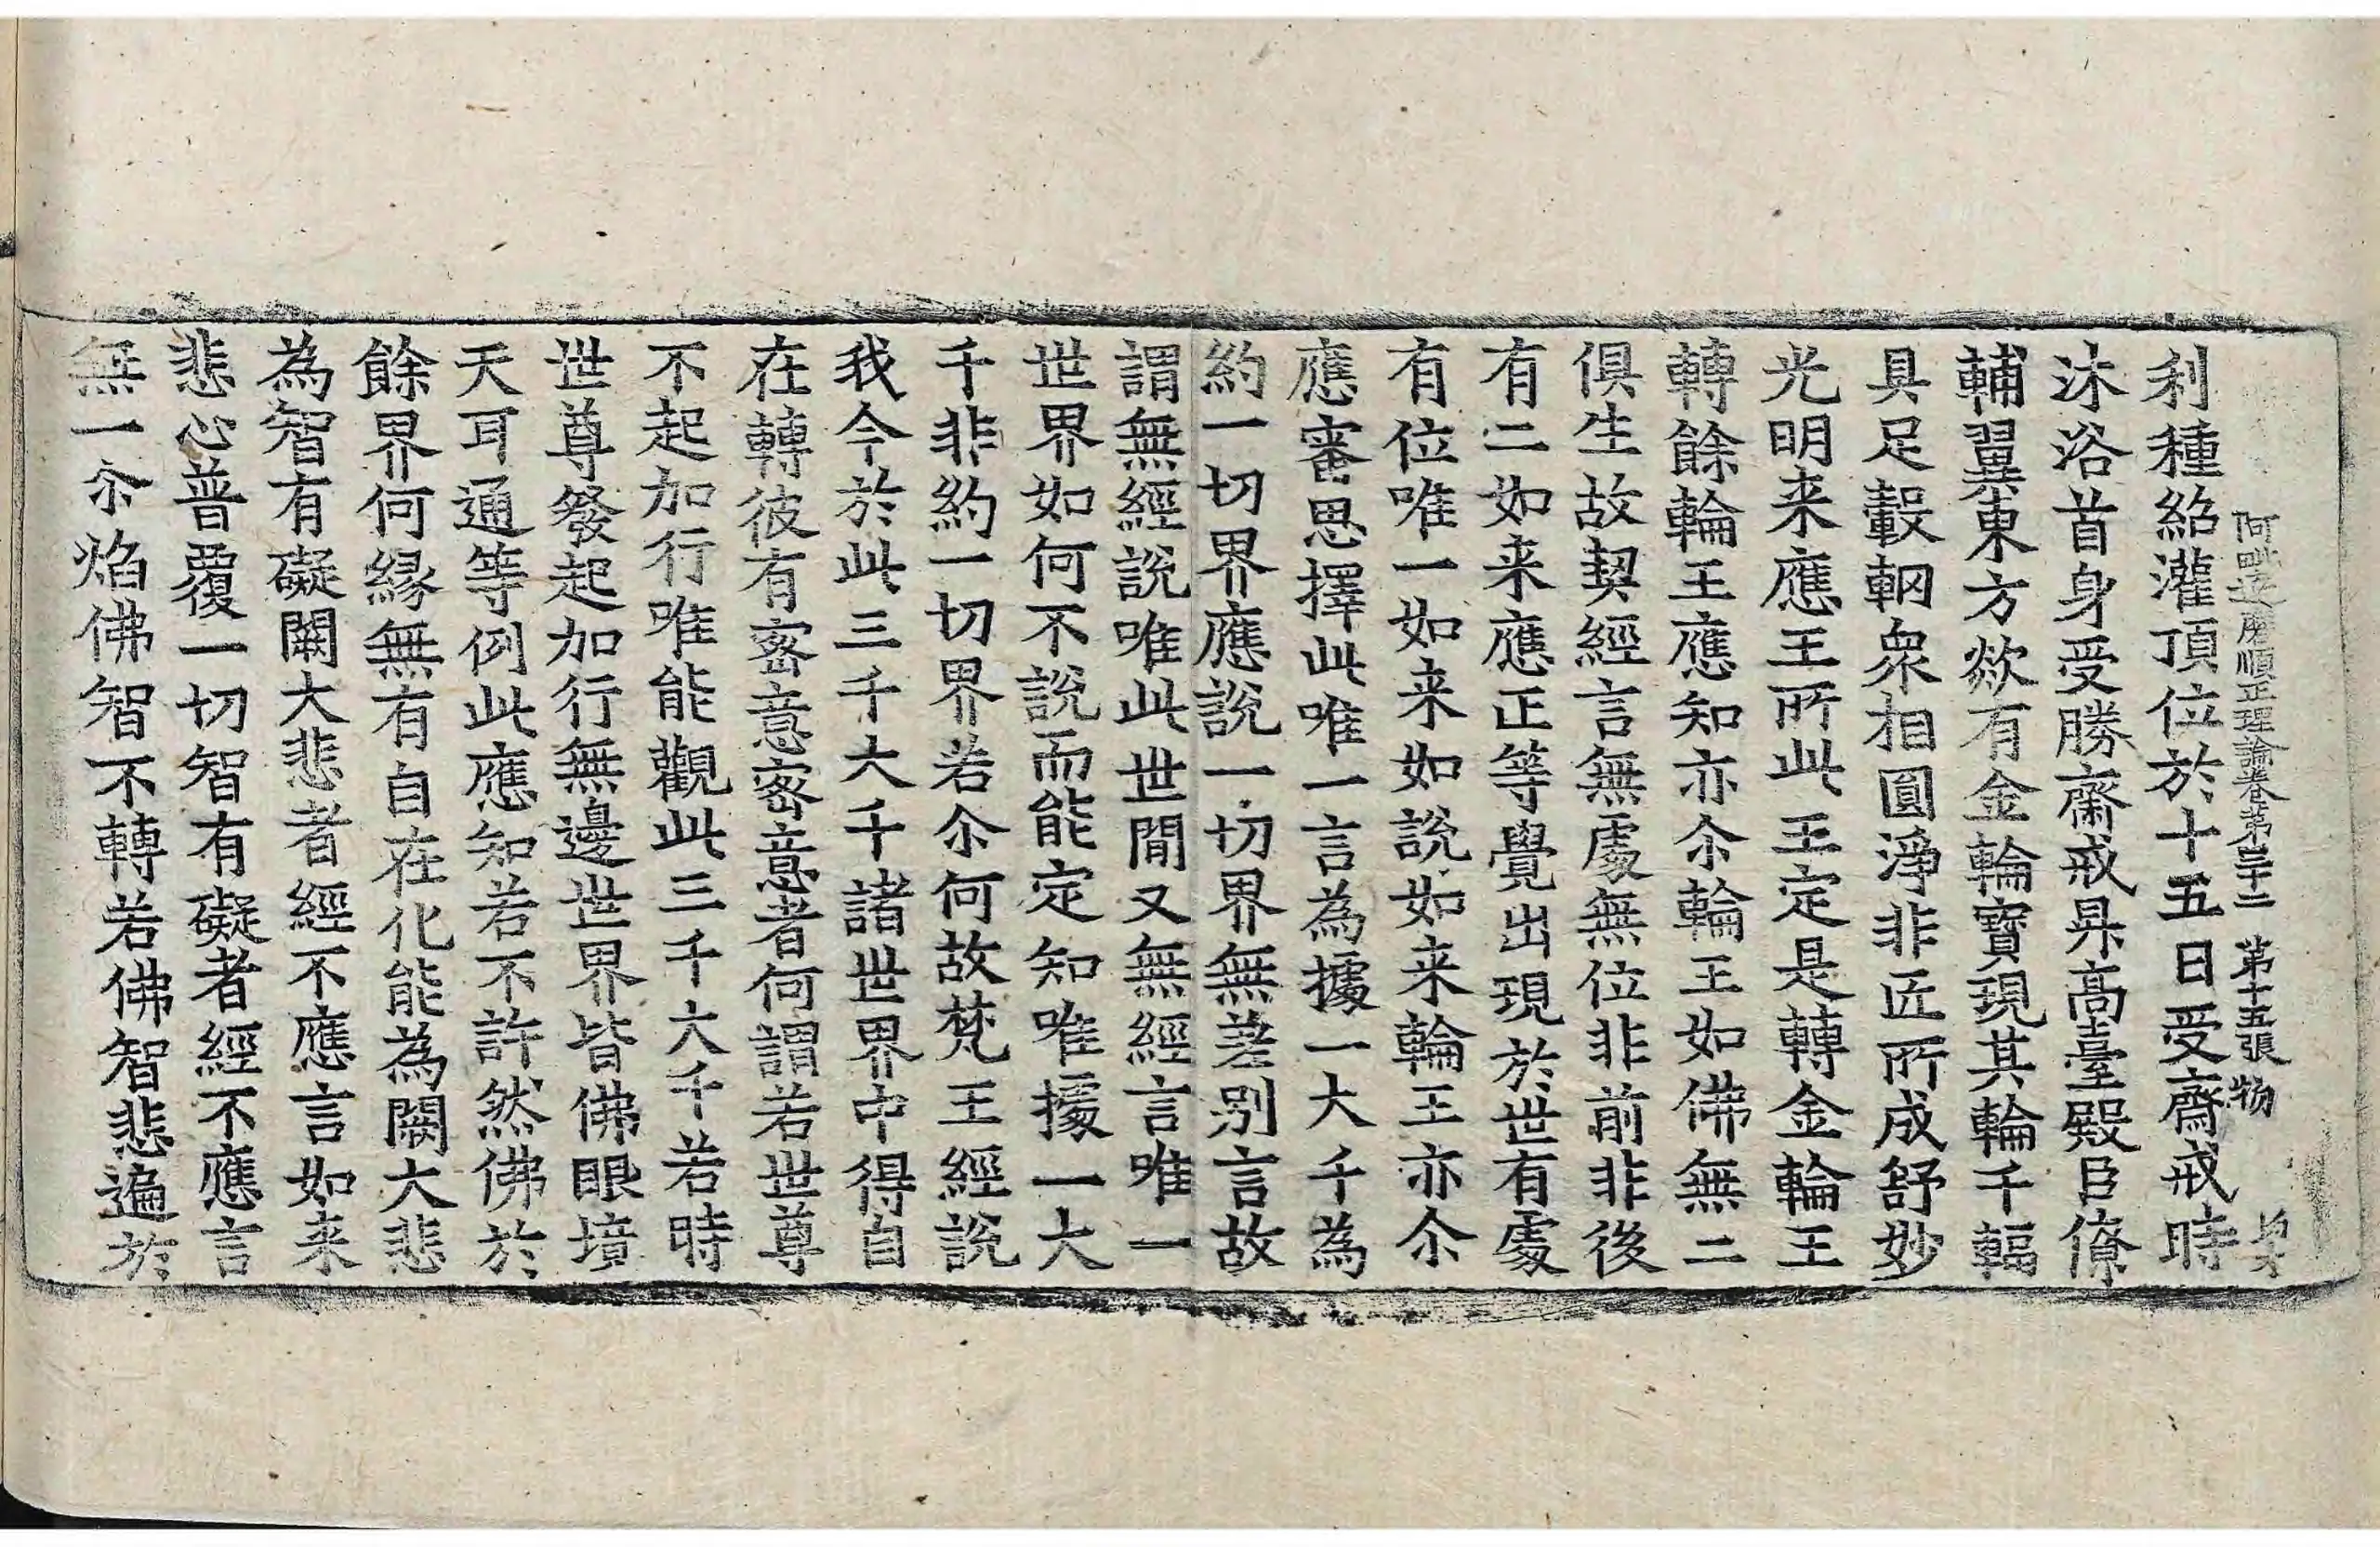 阿毗達磨順正理論卷第三十二 第十五張 物
利種紹灌頂位於十五日受齋戒時
沐浴首身受勝齋戒昇高臺殿臣僚
輔翼東方欻有金輪寶現其輪千輻
具足轂輞衆相圓淨非匠所成舒妙
光明来應王所此王定是轉金輪王
轉餘輪王應知亦尒輪王如佛無二
俱生故契經言無處無位非前非後
有二如来應正等覺出現於世有處
有位唯一如来如說如来輪王亦尒
應審思擇此唯一言為據一大千為
約一切界應說一切界無差別言故
謂無經說唯此世間又無經言唯一
世界如何不說而能定知唯據一大
千非約一切界若尒何故梵王經說
我今於此三千大千諸世界中得自
在轉彼有密意密意者何謂若世尊
不起加行唯能觀此三千大千若時
世尊發起加行無邊世界皆佛眼境
天耳通等例此應知若不許然佛於
餘界何緣無有自在化能為闕大悲
為智有礙闕大悲者經不應言如来
悲心普覆一切智有礙者經不應言
無一尒焰佛智不轉若佛智悲遍於